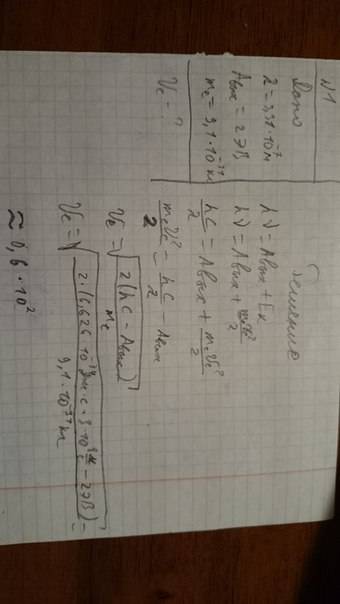 N1
Дано
λ = 3,31·10⁻⁷ м
Aвых = 2эВ
mₑ = 9,1·10⁻³¹ кг
Vₑ - ?
Решение
hν = Aвых + Eк
hν = Aвых + mₑVₑ²/2
hc/λ = Aвых + mₑVₑ²/2
mₑVₑ²/2 = hc/λ - Aвых
Vₑ = √(2(hc - Aвых)/mₑ)
Vₑ = √(2·(6,626·10⁻³⁴ Дж·с·3·10⁸ м/с - 2эВ)/9,1·10⁻³¹ кг) =
≈ 8,6·10²